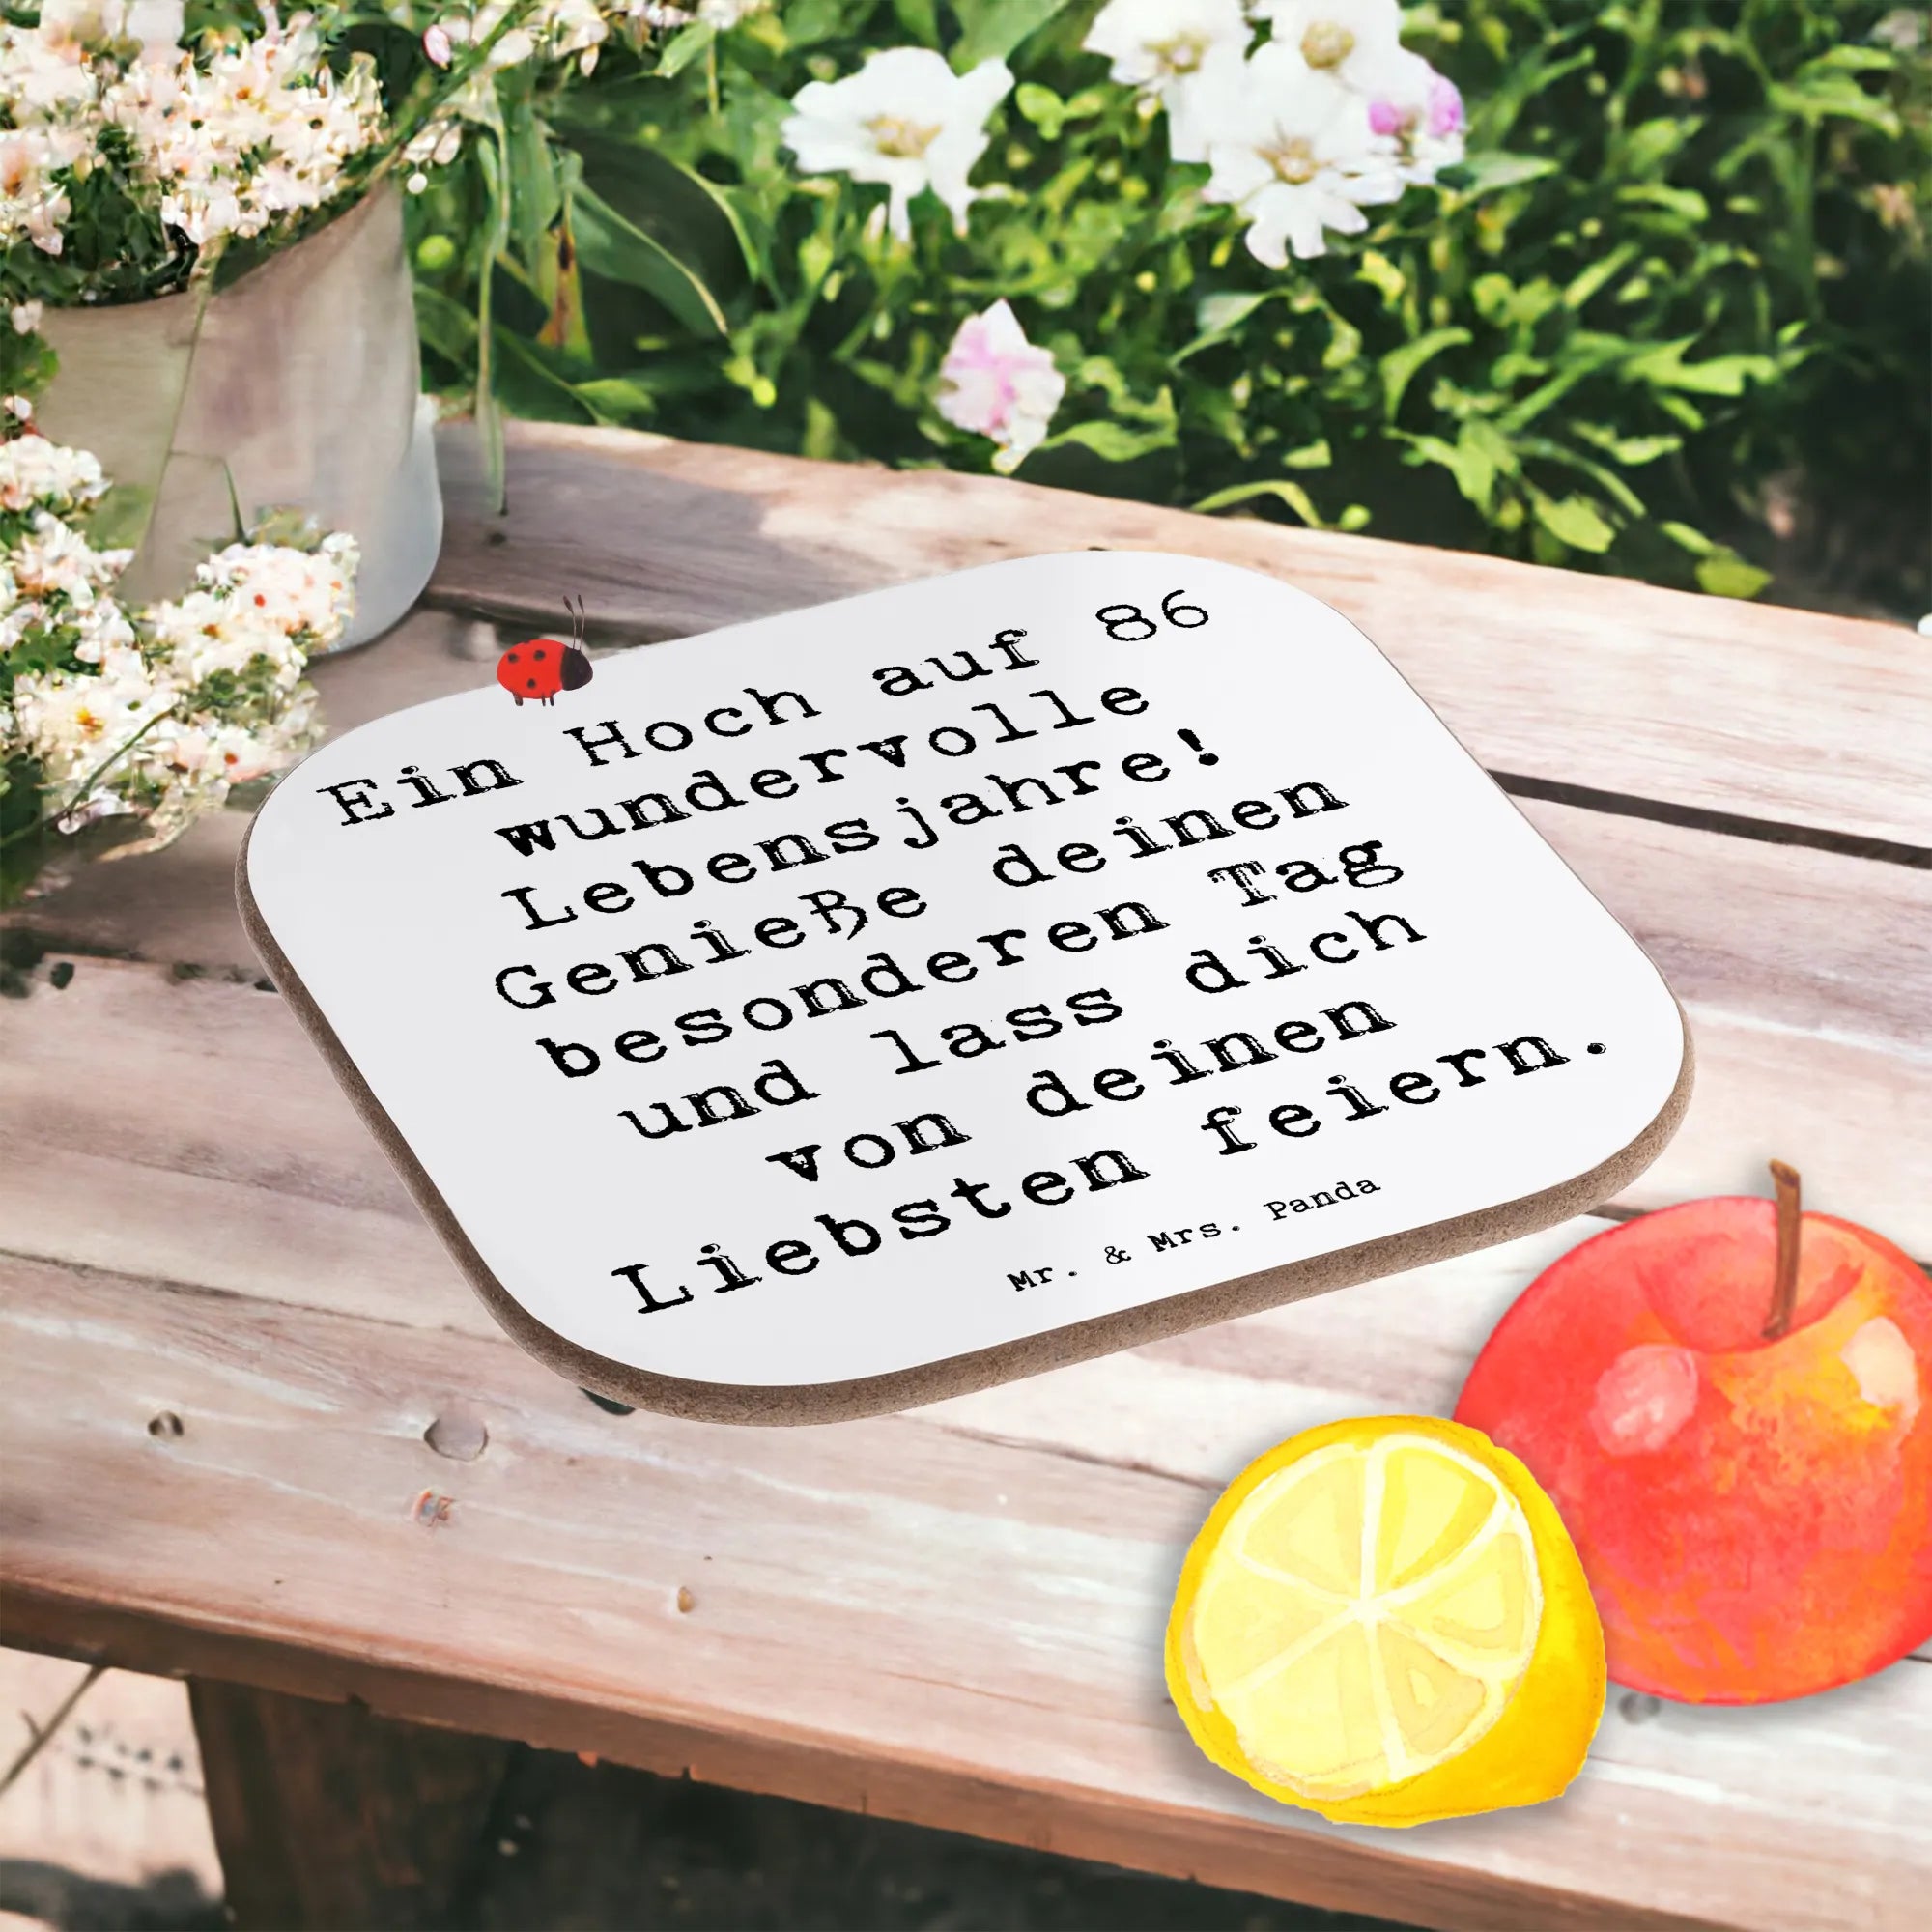 Ein Hoch auf 86
wundervolle
Lebensjahre!
Genieße deinen
besonderen Tag
und lass dich
von deinen
Liebsten feiern.
Mr. & Mrs. Panda